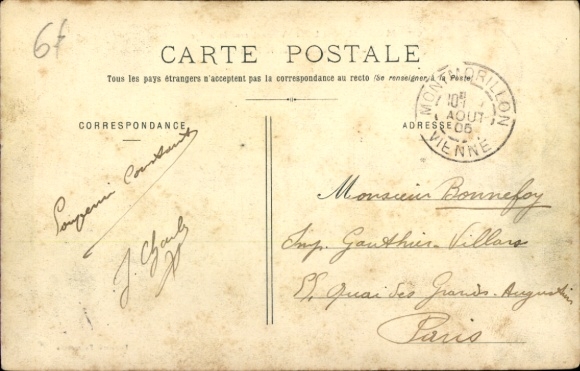 6f
CARTE POSTALE
Tous les pays étrangers n'acceptent pas la correspondance au recto (Se renseigner à la Poste)
CORRESPONDANCE
ADRESSE
MONTMORILLON
AOUT
05
VIENNE
Souvenir Constant
J. Charles
Monsieur Bonnefoy
Imp. Gauthier-Villars
55, Quai des Grands-Augustins
Paris